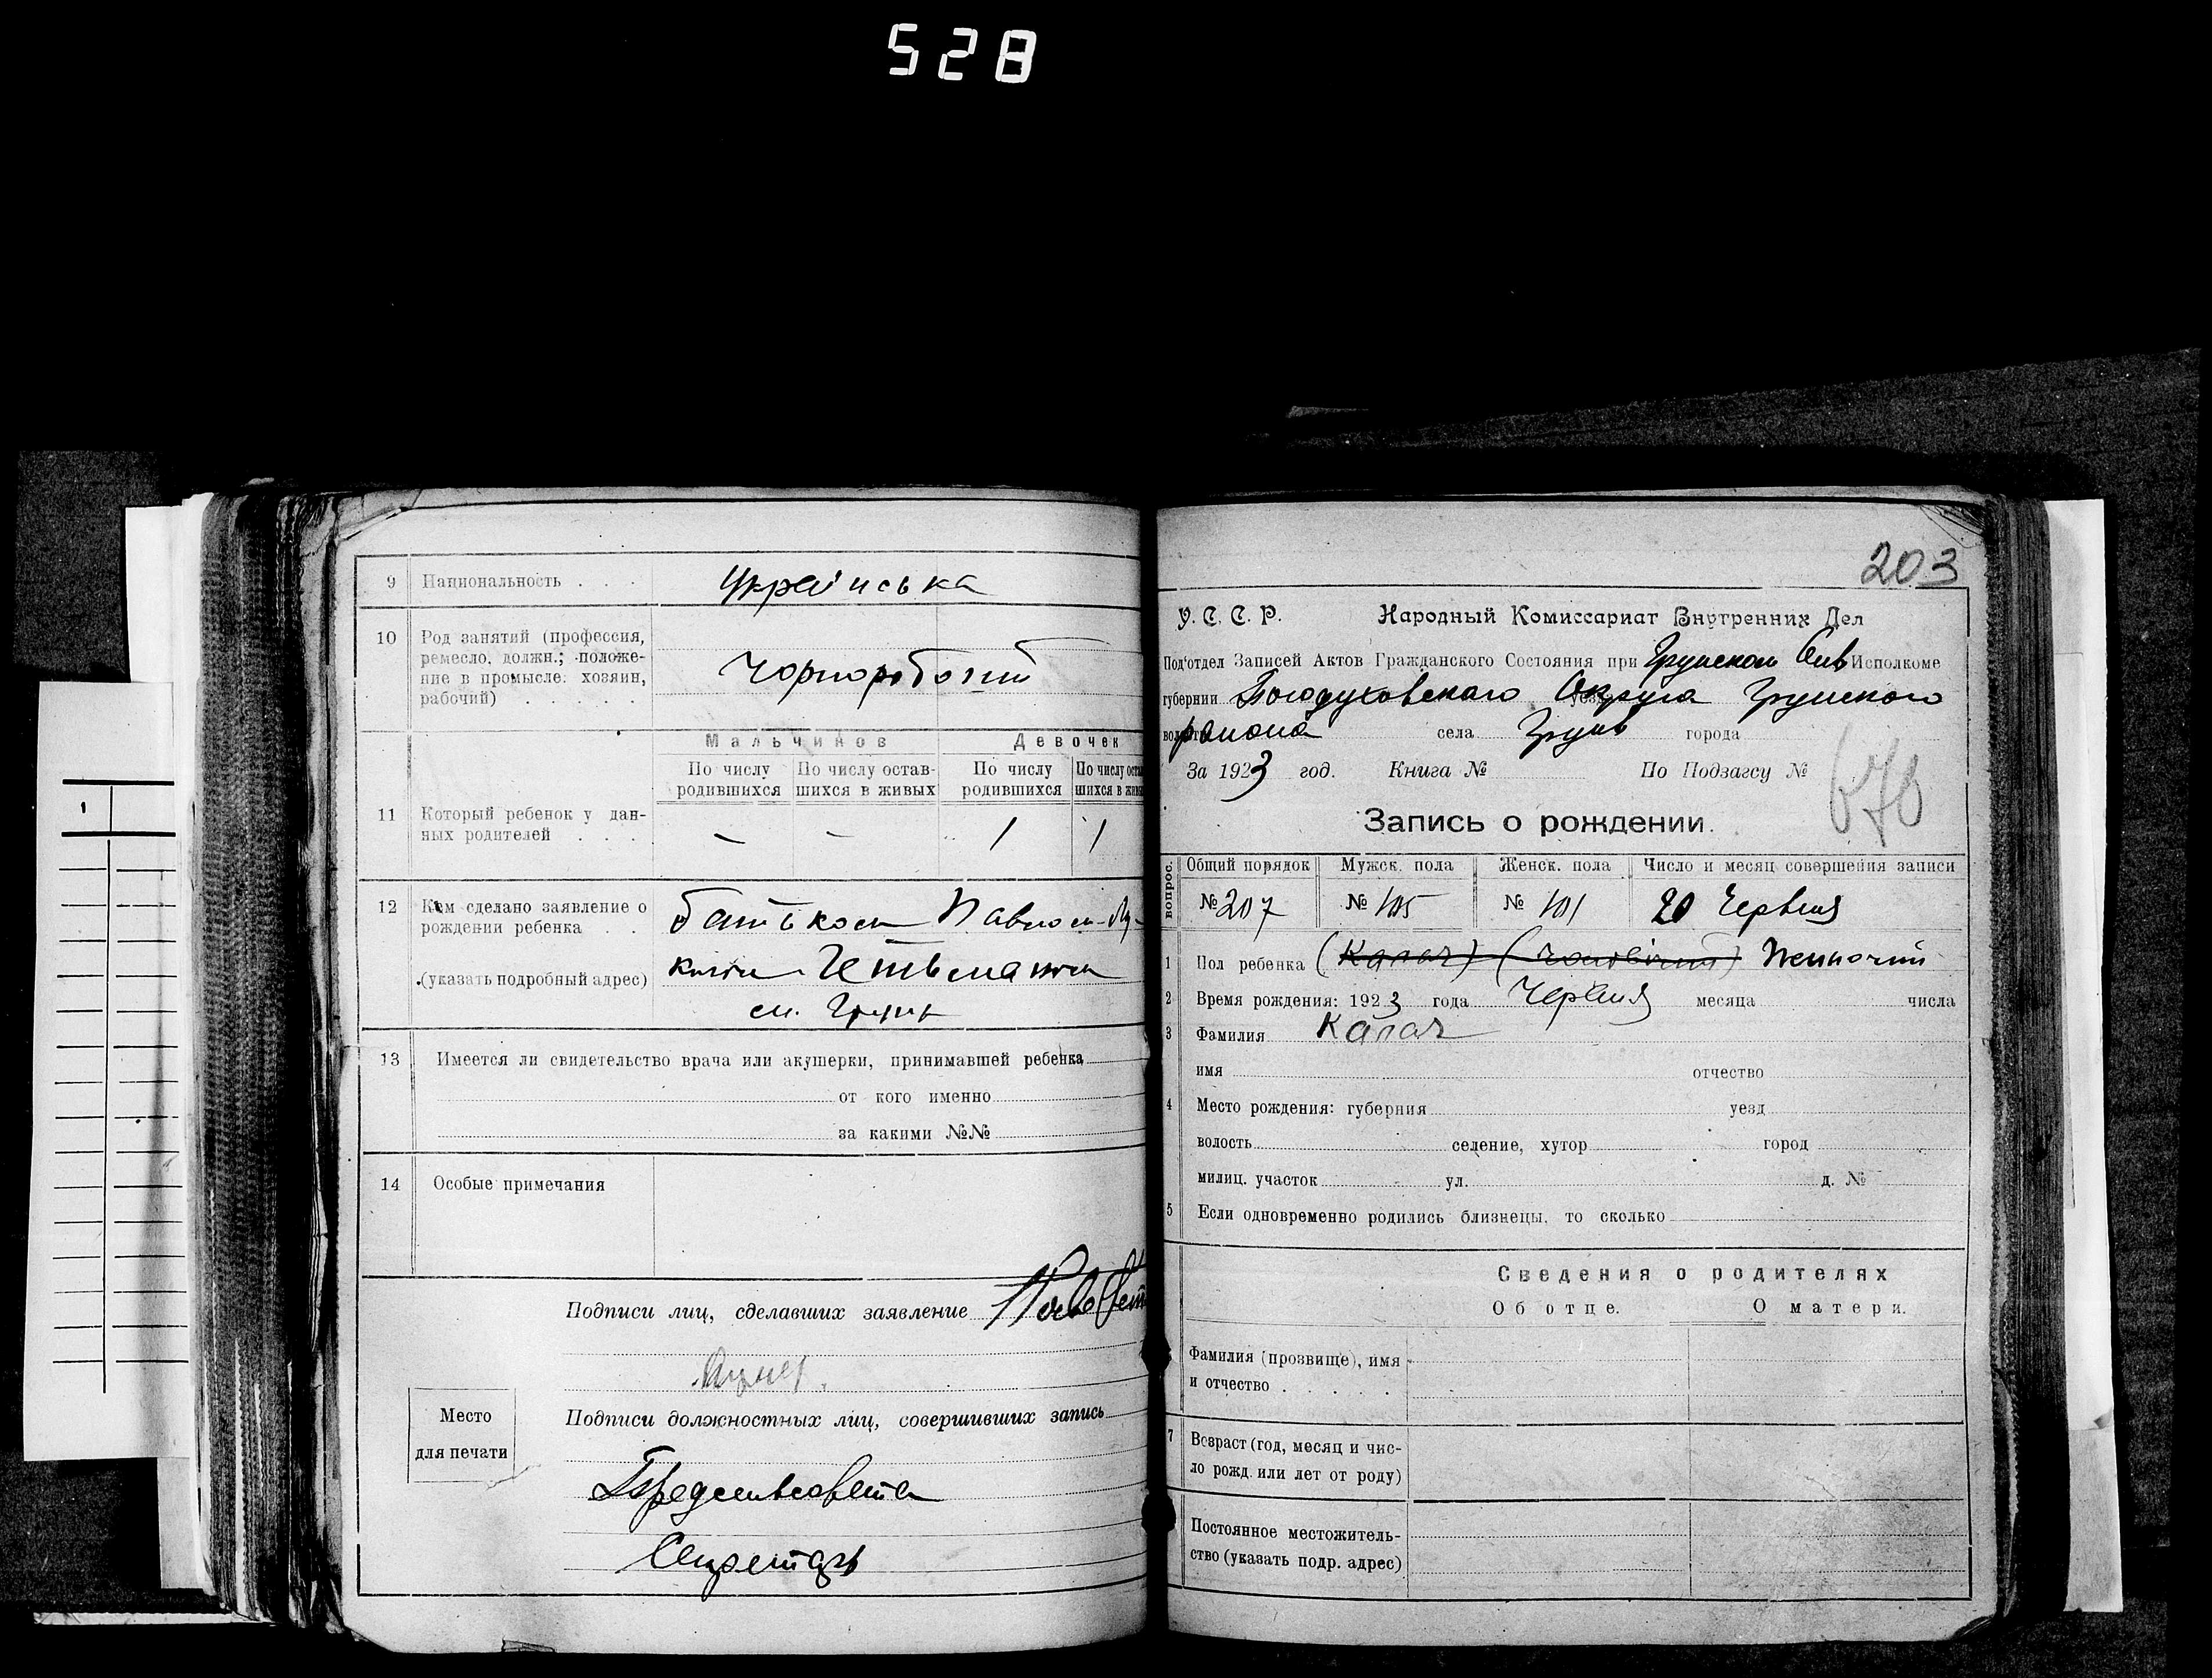 528
9 Национальность . . . Українська
10 Род занятий (профессия,
ремесло, должн.; положе-
ние в промысле: хозяин,
рабочий) . . . . .
Чорноробочий
Мальчиков Девочек
По числу родившихся По числу остав-шихся в живых По числу родившихся По числу
11 Который ребенок у дан-
ных родителей . . .
— — 1 1
12 Кем сделано заявление о
рождении ребенка . .
(указать подробный адрес)
батьком Павлом
Гетьманом
см. Грунь
13 Имеется ли свидетельство врача или акушерки, принимавшей ребенка
от кого именно
за какими №№
14 Особые примечания
Подписи лиц, сделавших заявление
Подписи должностных лиц, совершивших запись
Место
для печати
Предсельсовета
Секретарь
203
У. С. С. Р. Народный Комиссариат Внутренних Дел
Под‘отдел Записей Актов Гражданского Состояния при Грунском Исполкоме
губернии Богодуховского Округа Грунского
района села Грунь города
За 1923 год. Книга № По Подзагсу №
Запись о рождении.
вопрос. Общий порядок Мужск. пола Женск. пола Число и месяц совершения записи
№ 207 № 105 № 101 20 Червня
1 Пол ребенка (Калач) (чоловічий) Жиночий
2 Время рождения: 1923 года Червня месяца числа
3 Фамилия Калач
имя отчество
4 Место рождения: губерния уезд
волость селение, хутор город
милиц. участок ул. д. №
5 Если одновременно родились близнецы, то сколько
Сведения о родителях
Об отце. О матери.
Фамилия (прозвище), имя
и отчество . . . . .
7 Возраст (год, месяц и чис-
ло рожд. или лет от роду)
Постоянное местожитель-
ство (указать подр. адрес)